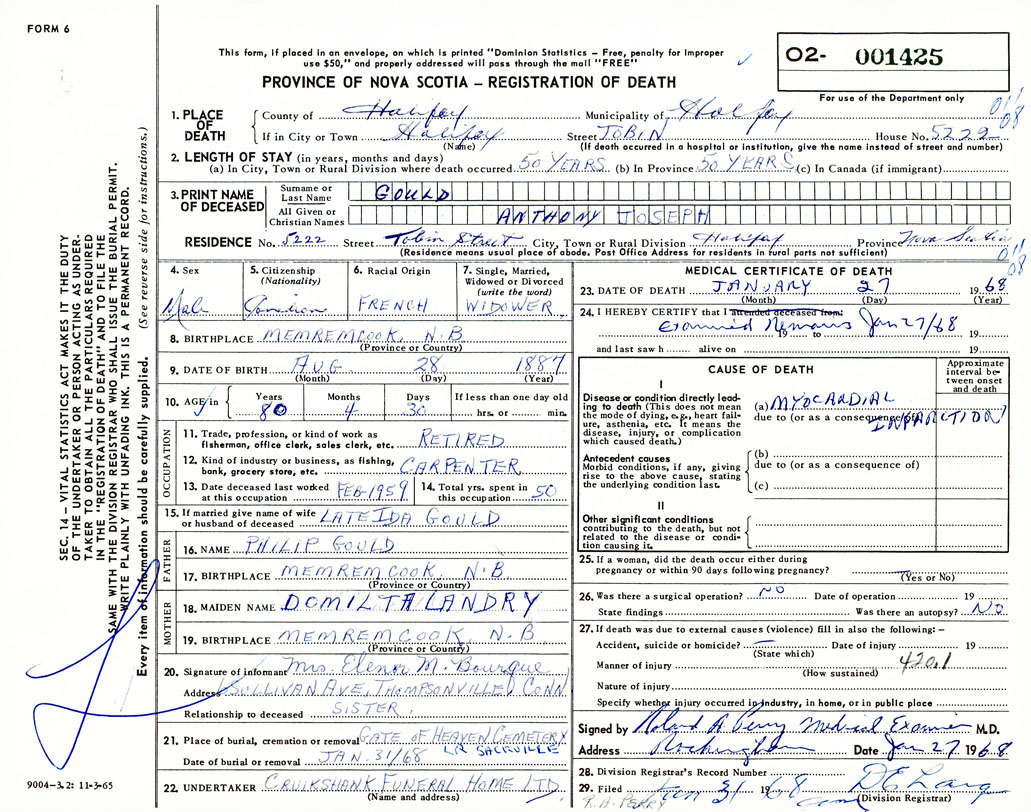 FORM 6
This form, if placed in an envelope, on which is printed "Dominion Statistics – Free, penalty for improper
use $50," and properly addressed will pass through the mail "FREE"
O2- 001425
PROVINCE OF NOVA SCOTIA – REGISTRATION OF DEATH
For use of the Department only
1. PLACE OF DEATH
County of Halifax Municipality of Halifax
If in City or Town Halifax Street TOBIN House No. 5222
(Name) (If death occurred in a hospital or institution, give the name instead of street and number)
2. LENGTH OF STAY (in years, months and days)
(a) In City, Town or Rural Division where death occurred 50 YEARS (b) In Province 50 YEARS (c) In Canada (if immigrant)
3. PRINT NAME OF DECEASED
Surname or Last Name GOULD
All Given or Christian Names ANTHONY JOSEPH
RESIDENCE No. 5222 Street Tobin Street City, Town or Rural Division Halifax Province Nova Scotia
(Residence means usual place of abode. Post Office Address for residents in rural parts not sufficient)
4. Sex Male
5. Citizenship (Nationality) Canadian
6. Racial Origin FRENCH
7. Single, Married, Widowed or Divorced (write the word) WIDOWER
8. BIRTHPLACE MEMREMCOOK, N.B
(Province or Country)
9. DATE OF BIRTH AUG 28 1887
(Month) (Day) (Year)
10. AGE in Years 80 Months 4 Days 30 If less than one day old hrs. or min.
OCCUPATION
11. Trade, profession, or kind of work as fisherman, office clerk, sales clerk, etc. RETIRED
12. Kind of industry or business, as fishing, bank, grocery store, etc. CARPENTER
13. Date deceased last worked at this occupation FEB-1959
14. Total yrs. spent in this occupation 50
15. If married give name of wife or husband of deceased LATE IDA GOULD
FATHER
16. NAME PHILIP GOULD
17. BIRTHPLACE MEMREMCOOK, N.B.
(Province or Country)
MOTHER
18. MAIDEN NAME DOMILTA LANDRY
19. BIRTHPLACE MEMREMCOOK, N.B
(Province or Country)
20. Signature of informant Mrs. Elenor M. Bourque
Address SULLIVAN AVE, THOMPSONVILLE, CONN
Relationship to deceased SISTER
21. Place of burial, cremation or removal GATE OF HEAVEN CEMETERY
LR SACKVILLE
Date of burial or removal JAN. 31/68
22. UNDERTAKER CRUIKSHANK FUNERAL HOME LTD.
(Name and address)
MEDICAL CERTIFICATE OF DEATH
23. DATE OF DEATH JANUARY 27 1968
(Month) (Day) (Year)
24. I HEREBY CERTIFY that I attended deceased from:
examined Remains Jan 27/68
19 to 19
and last saw h alive on 19
CAUSE OF DEATH
Approximate interval between onset and death
I
Disease or condition directly leading to death (This does not mean the mode of dying, e.g., heart failure, asthenia, etc. It means the disease, injury, or complication which caused death.)
(a) MYOCARDIAL INFARCTION
due to (or as a consequence of)
Antecedent causes
Morbid conditions, if any, giving rise to the above cause, stating the underlying condition last.
(b)
due to (or as a consequence of)
(c)
II
Other significant conditions
contributing to the death, but not related to the disease or condition causing it.
25. If a woman, did the death occur either during
pregnancy or within 90 days following pregnancy?
(Yes or No)
26. Was there a surgical operation? NO Date of operation 19
State findings Was there an autopsy? NO
27. If death was due to external causes (violence) fill in also the following: –
Accident, suicide or homicide? Date of injury 19
(State which)
Manner of injury 420.1
(How sustained)
Nature of injury
Specify whether injury occurred in industry, in home, or in public place
Signed by Roland A Perry Medical Examiner M.D.
Address Rockingham Date Jan 27 1968
28. Division Registrar's Record Number
29. Filed Jan 31 1968
R.A. PERRY
(Division Registrar)
SEC. 14 – VITAL STATISTICS ACT MAKES IT THE DUTY
OF THE UNDERTAKER OR PERSON ACTING AS UNDER-
TAKER TO OBTAIN ALL THE PARTICULARS REQUIRED
IN THE "REGISTRATION OF DEATH" AND TO FILE THE
SAME WITH THE DIVISION REGISTRAR WHO SHALL ISSUE THE BURIAL PERMIT.
WRITE PLAINLY WITH UNFADING INK. THIS IS A PERMANENT RECORD.
Every item of information should be carefully supplied. (See reverse side for instructions.)
9004-3.2: 11-3-65